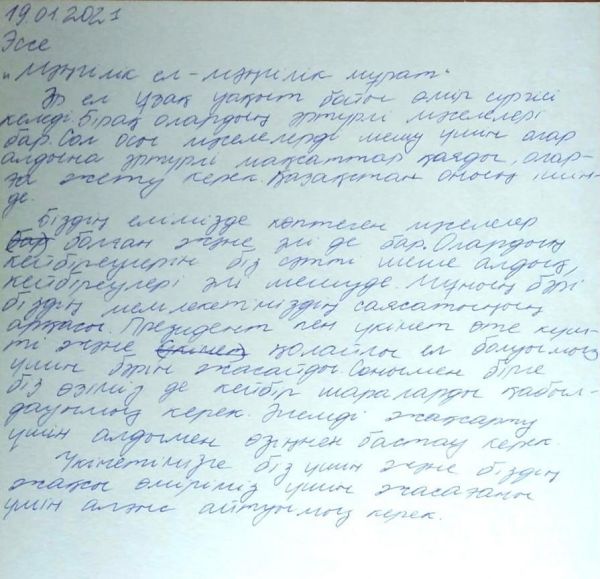 19.01.2021
Эссе
„Мәңгілік ел - мәңгілік мұрат"
Әр ел ұзақ уақыт бойы өмір сүргісі
келеді. Бірақ олардың әртүрлі мәселелері
бар. Сол осы мәселелерді шешу үшін олар
алдына әртүрлі мақсаттар қояды, оған-
да жету керек. Қазақстан оның ішін-
де.
Біздің елімізде көптеген мәселелер
болған және әлі де бар. Олардың
кейбіреулерін біз сәтті шеше алдық,
кейбіреулері әлі шешуде. Мұның бәрі
біздің мемлекетіміздің саясатының
арқасы. Президент пен үкімет өте күш-
ті және қолайлы ел болуымыз
үшін бәрін жасайды. Сонымен бірге
біз өзіміз де кейбір шараларды қабыл-
дауымыз керек. Әлемді жақсарту
үшін алдымен өзіңнен бастау керек.
Үкіметімізге біз үшін және біздің
жақсы өміріміз үшін жасағаны
үшін алғыс айтуымыз керек.